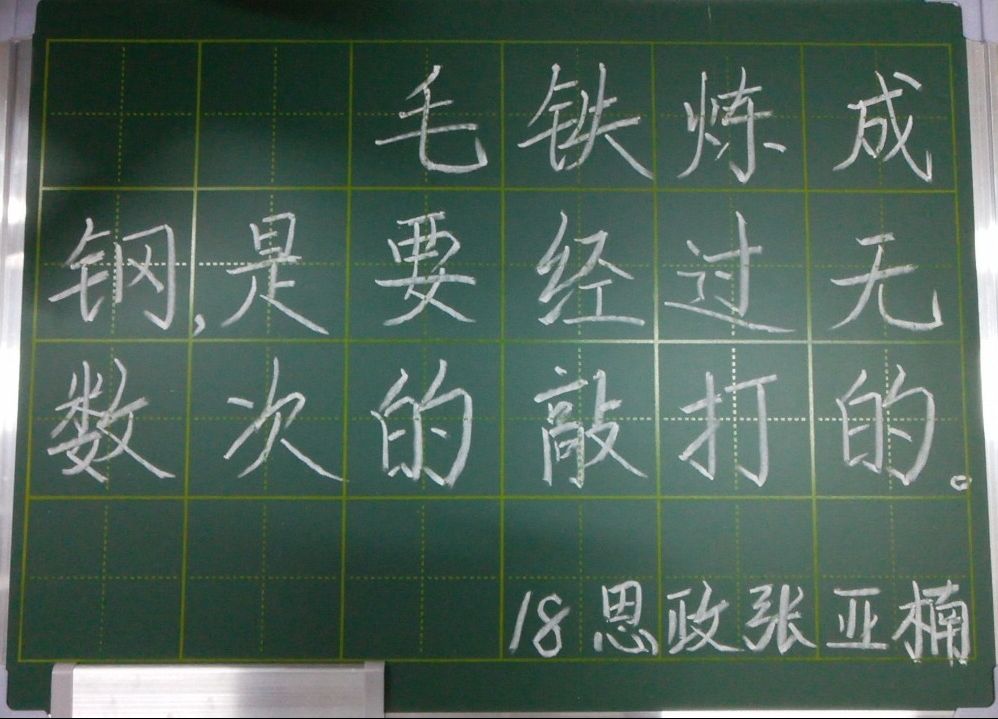 毛铁炼成
钢,是要经过无
数次的敲打的。
18思政张亚楠